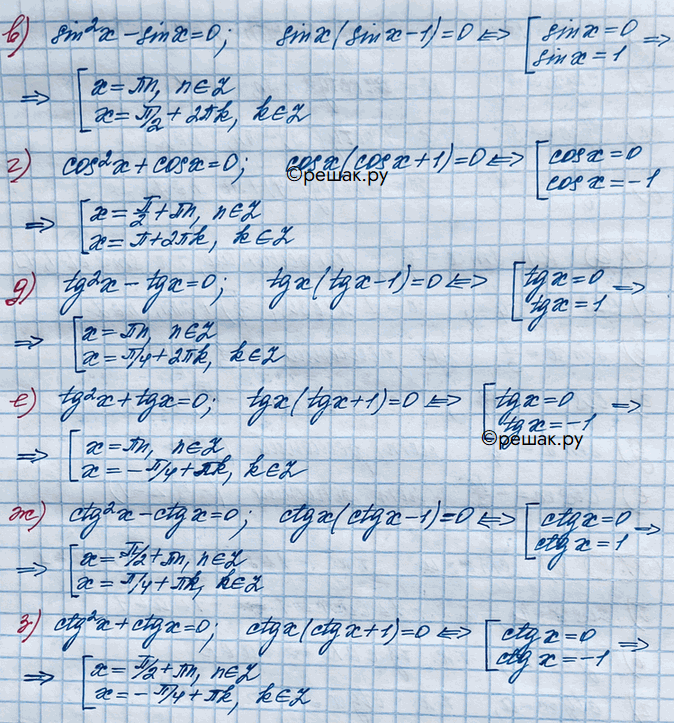 в) sin²x - sinx=0; sinx(sinx-1)=0 ⟺ [sinx=0 sinx=1 ⟹
⟹ [x=πn, n∈Z
x=π/2+2πk, k∈Z
г) cos²x+cosx=0; cosx(cosx+1)=0 ⟺ [cosx=0 cosx=-1
©решак.ру
⟹ [x=π/2+πn, n∈Z
x=π+2πk, k∈Z
д) tg²x - tgx=0; tgx(tgx-1)=0 ⟺ [tgx=0 tgx=1 ⟹
⟹ [x=πn, n∈Z
x=π/4+2πk, k∈Z
е) tg²x+tgx=0; tgx(tgx+1)=0 ⟺ [tgx=0 tgx=-1 ⟹
©решак.ру
⟹ [x=πn, n∈Z
x=-π/4+πk, k∈Z
ж) ctg²x-ctgx=0; ctgx(ctgx-1)=0 ⟺ [ctgx=0 ctgx=1 ⟹
⟹ [x=π/2+πn, n∈Z
x=π/4+πk, k∈Z
з) ctg²x+ctgx=0; ctgx(ctgx+1)=0 ⟺ [ctgx=0 ctgx=-1 ⟹
⟹ [x=π/2+πn, n∈Z
x=-π/4+πk, k∈Z